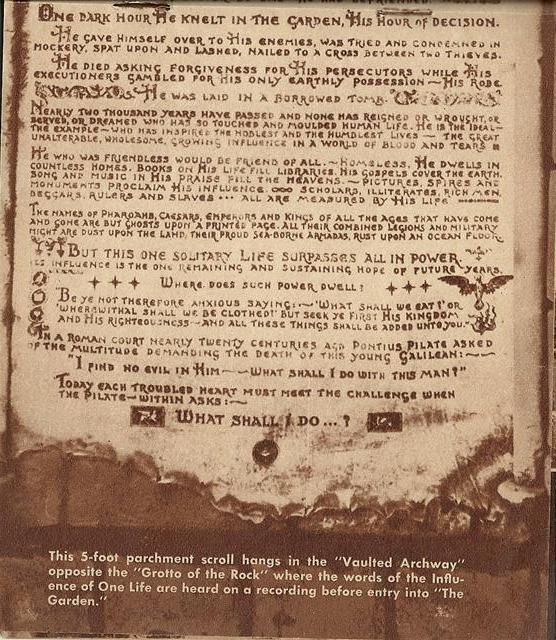 One dark hour He knelt in the garden, His hour of decision.
He gave Himself over to His enemies, was tried and condemned in
mockery, spat upon and lashed, nailed to a cross between two thieves.
He died asking forgiveness for His persecutors while His
executioners gambled for His only earthly possession — His robe.
He was laid in a borrowed tomb.
Nearly two thousand years have passed and none has reigned or wrought, or
served, or dreamed who has so touched and moulded human life. He is the ideal—
the example—who has inspired the noblest and the humblest lives — the great
unalterable, wholesome, growing influence in a world of blood and tears
He who was friendless would be friend of all.~ Homeless, He dwells in
countless homes. Books on His life fill libraries. His gospels cover the earth.
Song and music in His praise fill the heavens.~ Pictures, spires and
monuments proclaim His influence. Scholars, illiterates, rich men,
beggars, rulers and slaves ··· all are measured by His life
The names of Pharoahs, Caesars, emperors and kings of all the ages that have come
and gone are but ghosts upon a printed page. All their combined legions and military
might are dust upon the land, their proud sea-borne armadas, rust upon an ocean floor.
But this one solitary life surpasses all in power.
Its influence is the one remaining and sustaining hope of future years.
Where does such power dwell?
"Be ye not therefore anxious saying:~'What shall we eat?' or
'wherewithal shall we be clothed?' But seek ye first His kingdom
and His righteousness~and all these things shall be added unto you."
In a Roman court nearly twenty centuries ago Pontius Pilate asked
of the multitude demanding the death of this young Galilean:~
"I find no evil in Him—what shall I do with this man?"
Today each troubled heart must meet the challenge when
the Pilate~within asks:~
What shall I do...?
This 5-foot parchment scroll hangs in the "Vaulted Archway"
opposite the "Grotto of the Rock" where the words of the Influ-
ence of One Life are heard on a recording before entry into "The
Garden."